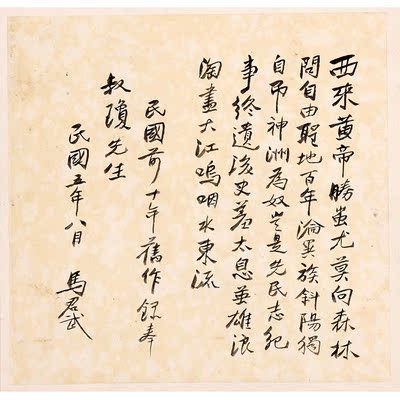 西來黃帝勝蚩尤莫向森林
問自由聖地百年淪異族斜陽獨
自吊神洲為奴豈是先民志紀
事終遺後史羞太息英雄浪
淘盡大江嗚咽水東流
民國前十年舊作錄奉
叔瓊先生
民國五年八月 馬君武